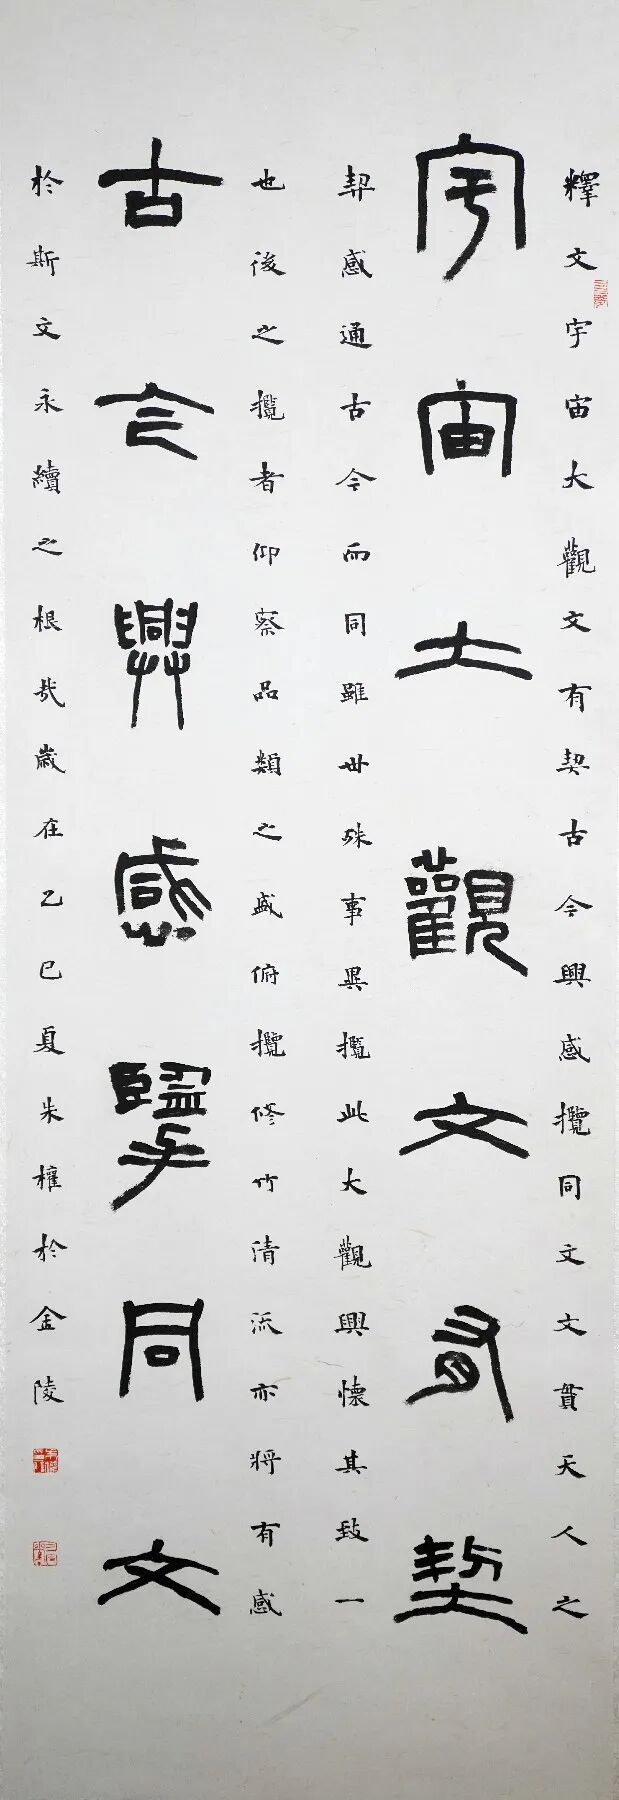 釋文宇宙大觀文有契古今興感攬同文文貫天人之
宇宙大觀文有契
契感通古今而同雖世殊事異攬此大觀興懷其致一
也後之攬者仰察品類之盛俯攬修竹清流亦將有感
古今興感擥同文
於斯文永續之根哉歲在乙巳夏朱權於金陵